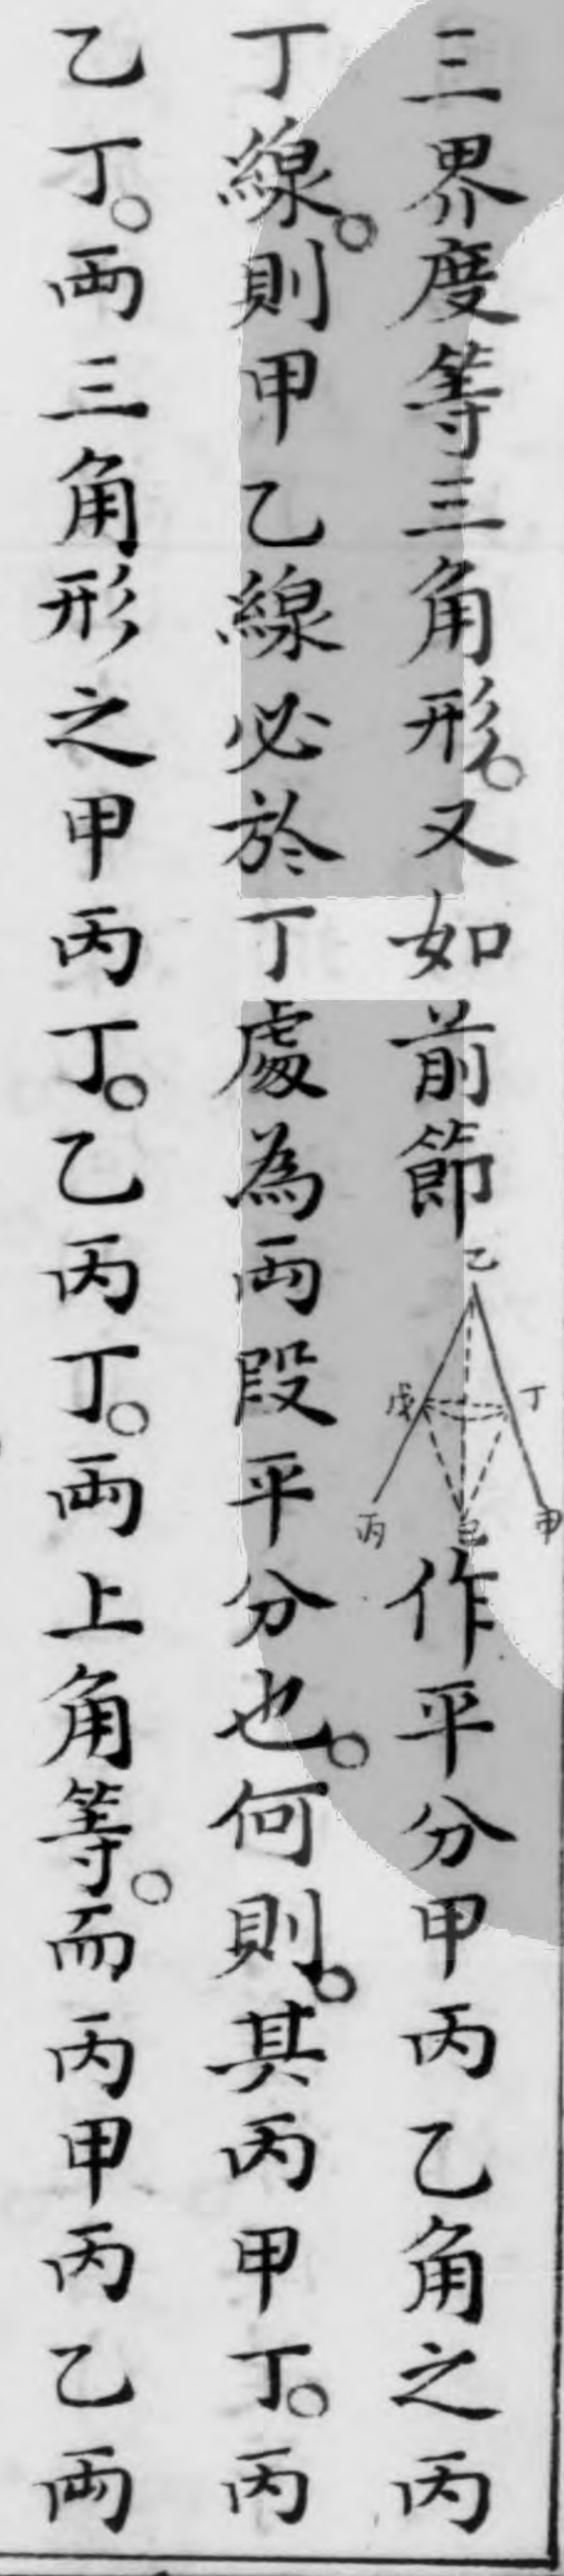 三界度等三角形。又如前節作平分甲丙乙角之丙
丁線。則甲乙線必於丁處為兩段平分也。何則。其丙甲丁。丙
乙丁。兩三角形之甲丙丁。乙丙丁。兩上角等。而丙甲丙乙兩
乙
戊
丁
丙
己
甲